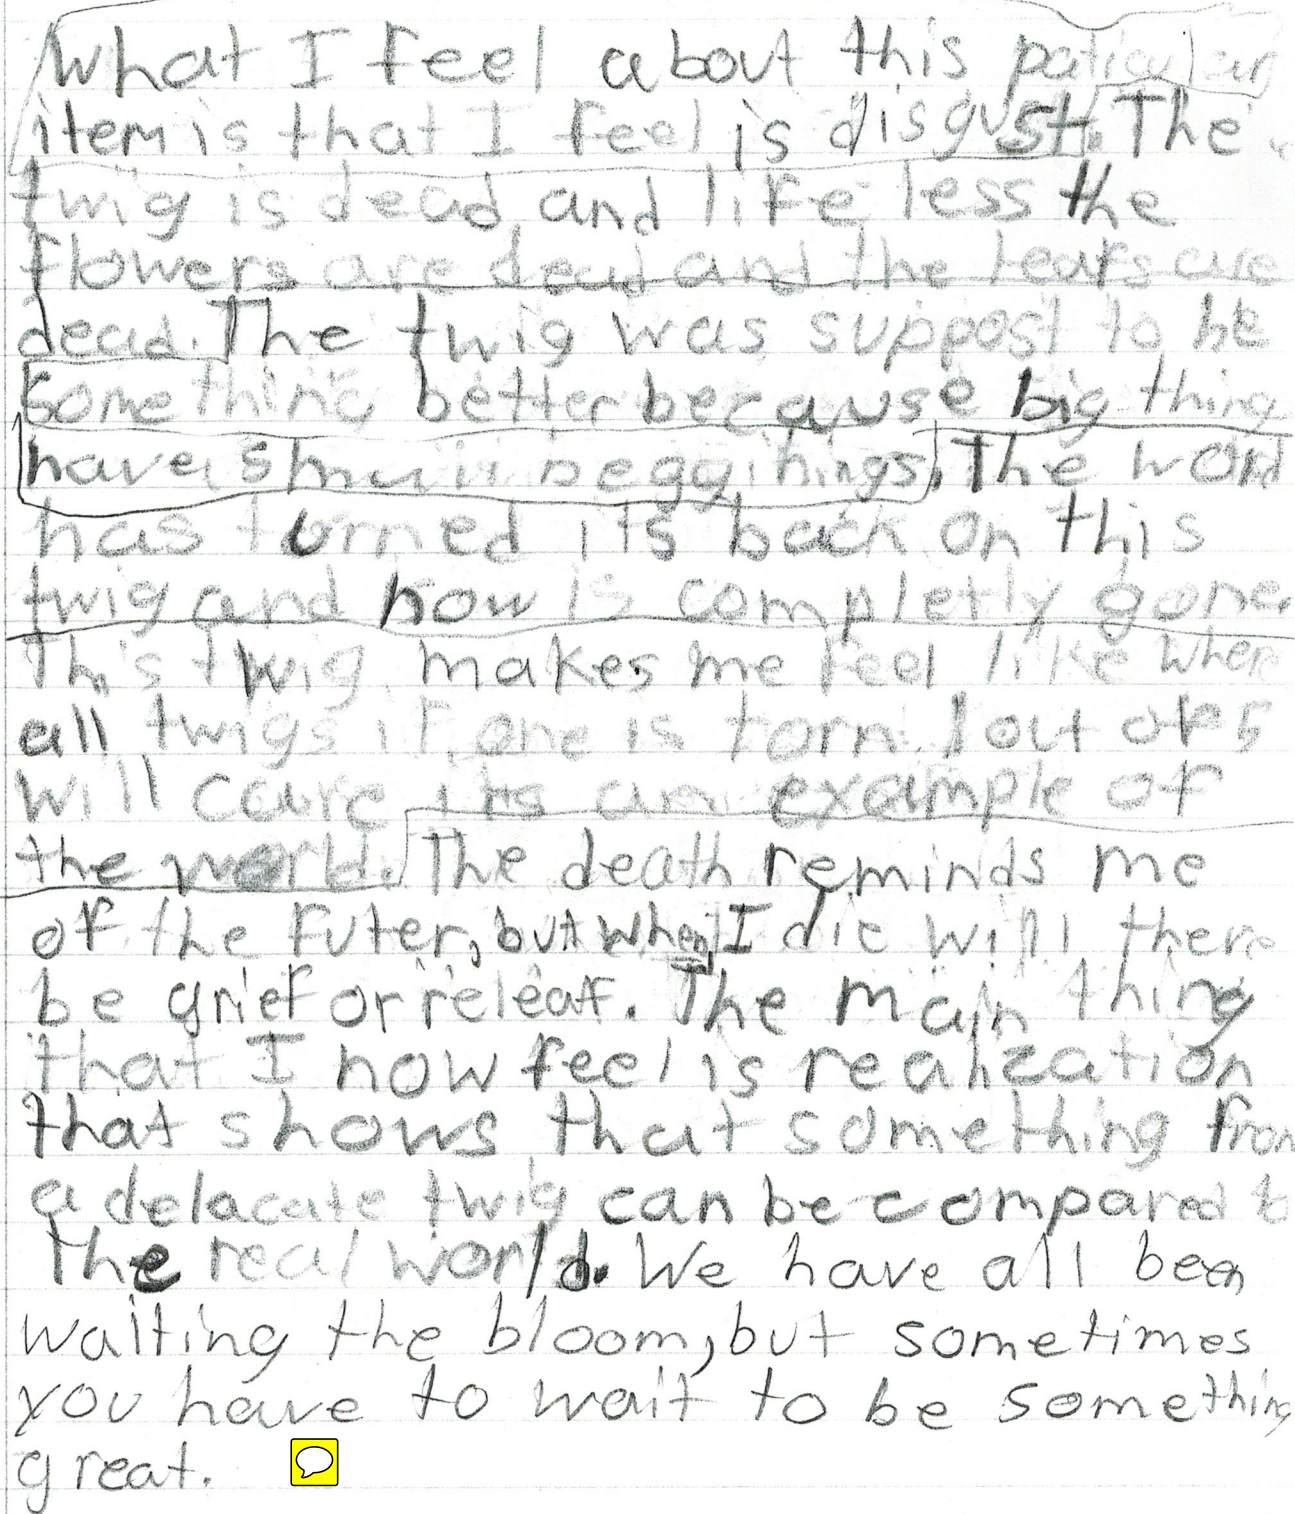 What I feel about this paticular
item is that I feel is disgust. The
twig is dead and life less the
flowers are dead and the leafs are
dead. The twig was suppost to be
something better because big thing
have small beggihings. The world
has turned its back on this
twig and now is completly gone.
This twig makes me feel like when
all twigs if one is torn 1 out of 5
will care its an example of
the world. The death reminds me
of the futer, but when I die will there
be grief or releaf. The main thing
that I now feel is realization
that shows that something from
a delacate twig can be compared to
the real world. We have all been
waiting the bloom, but sometimes
you have to wait to be something
great.